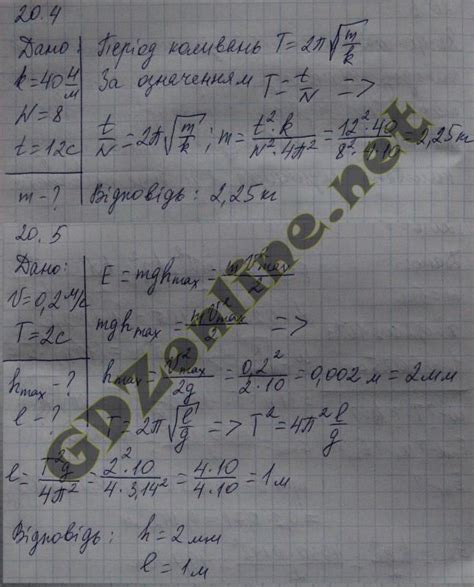 20.4
Дано:
k=40 Н/м
N=8
t=12с
m-?
Період коливань T=2π√(m/k)
За означенням T=t/N =>
t/N=2π√(m/k); m=t²·k/N²·4π²=12²·40/8²·4·10=2,25кг
Відповідь: 2,25кг
20.5
Дано:
V=0,2м/с
T=2с
hmax-?
l-?
E=mghmax=mV²max/2
mghmax=mV²max/2 =>
hmax=V²max/2g=0,2²/2·10=0,002м=2мм
T=2π√(l/g) => T²=4π² l/g
l=T²g/4π²=2²·10/4·3,14²=4·10/4·10=1м
Відповідь: h=2мм
l=1м
GDZonline.net